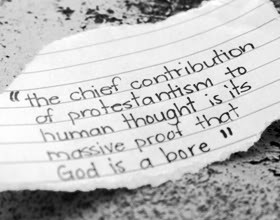 “the chief contribution
of protestantism to
human thought is its
massive proof that
God is a bore”